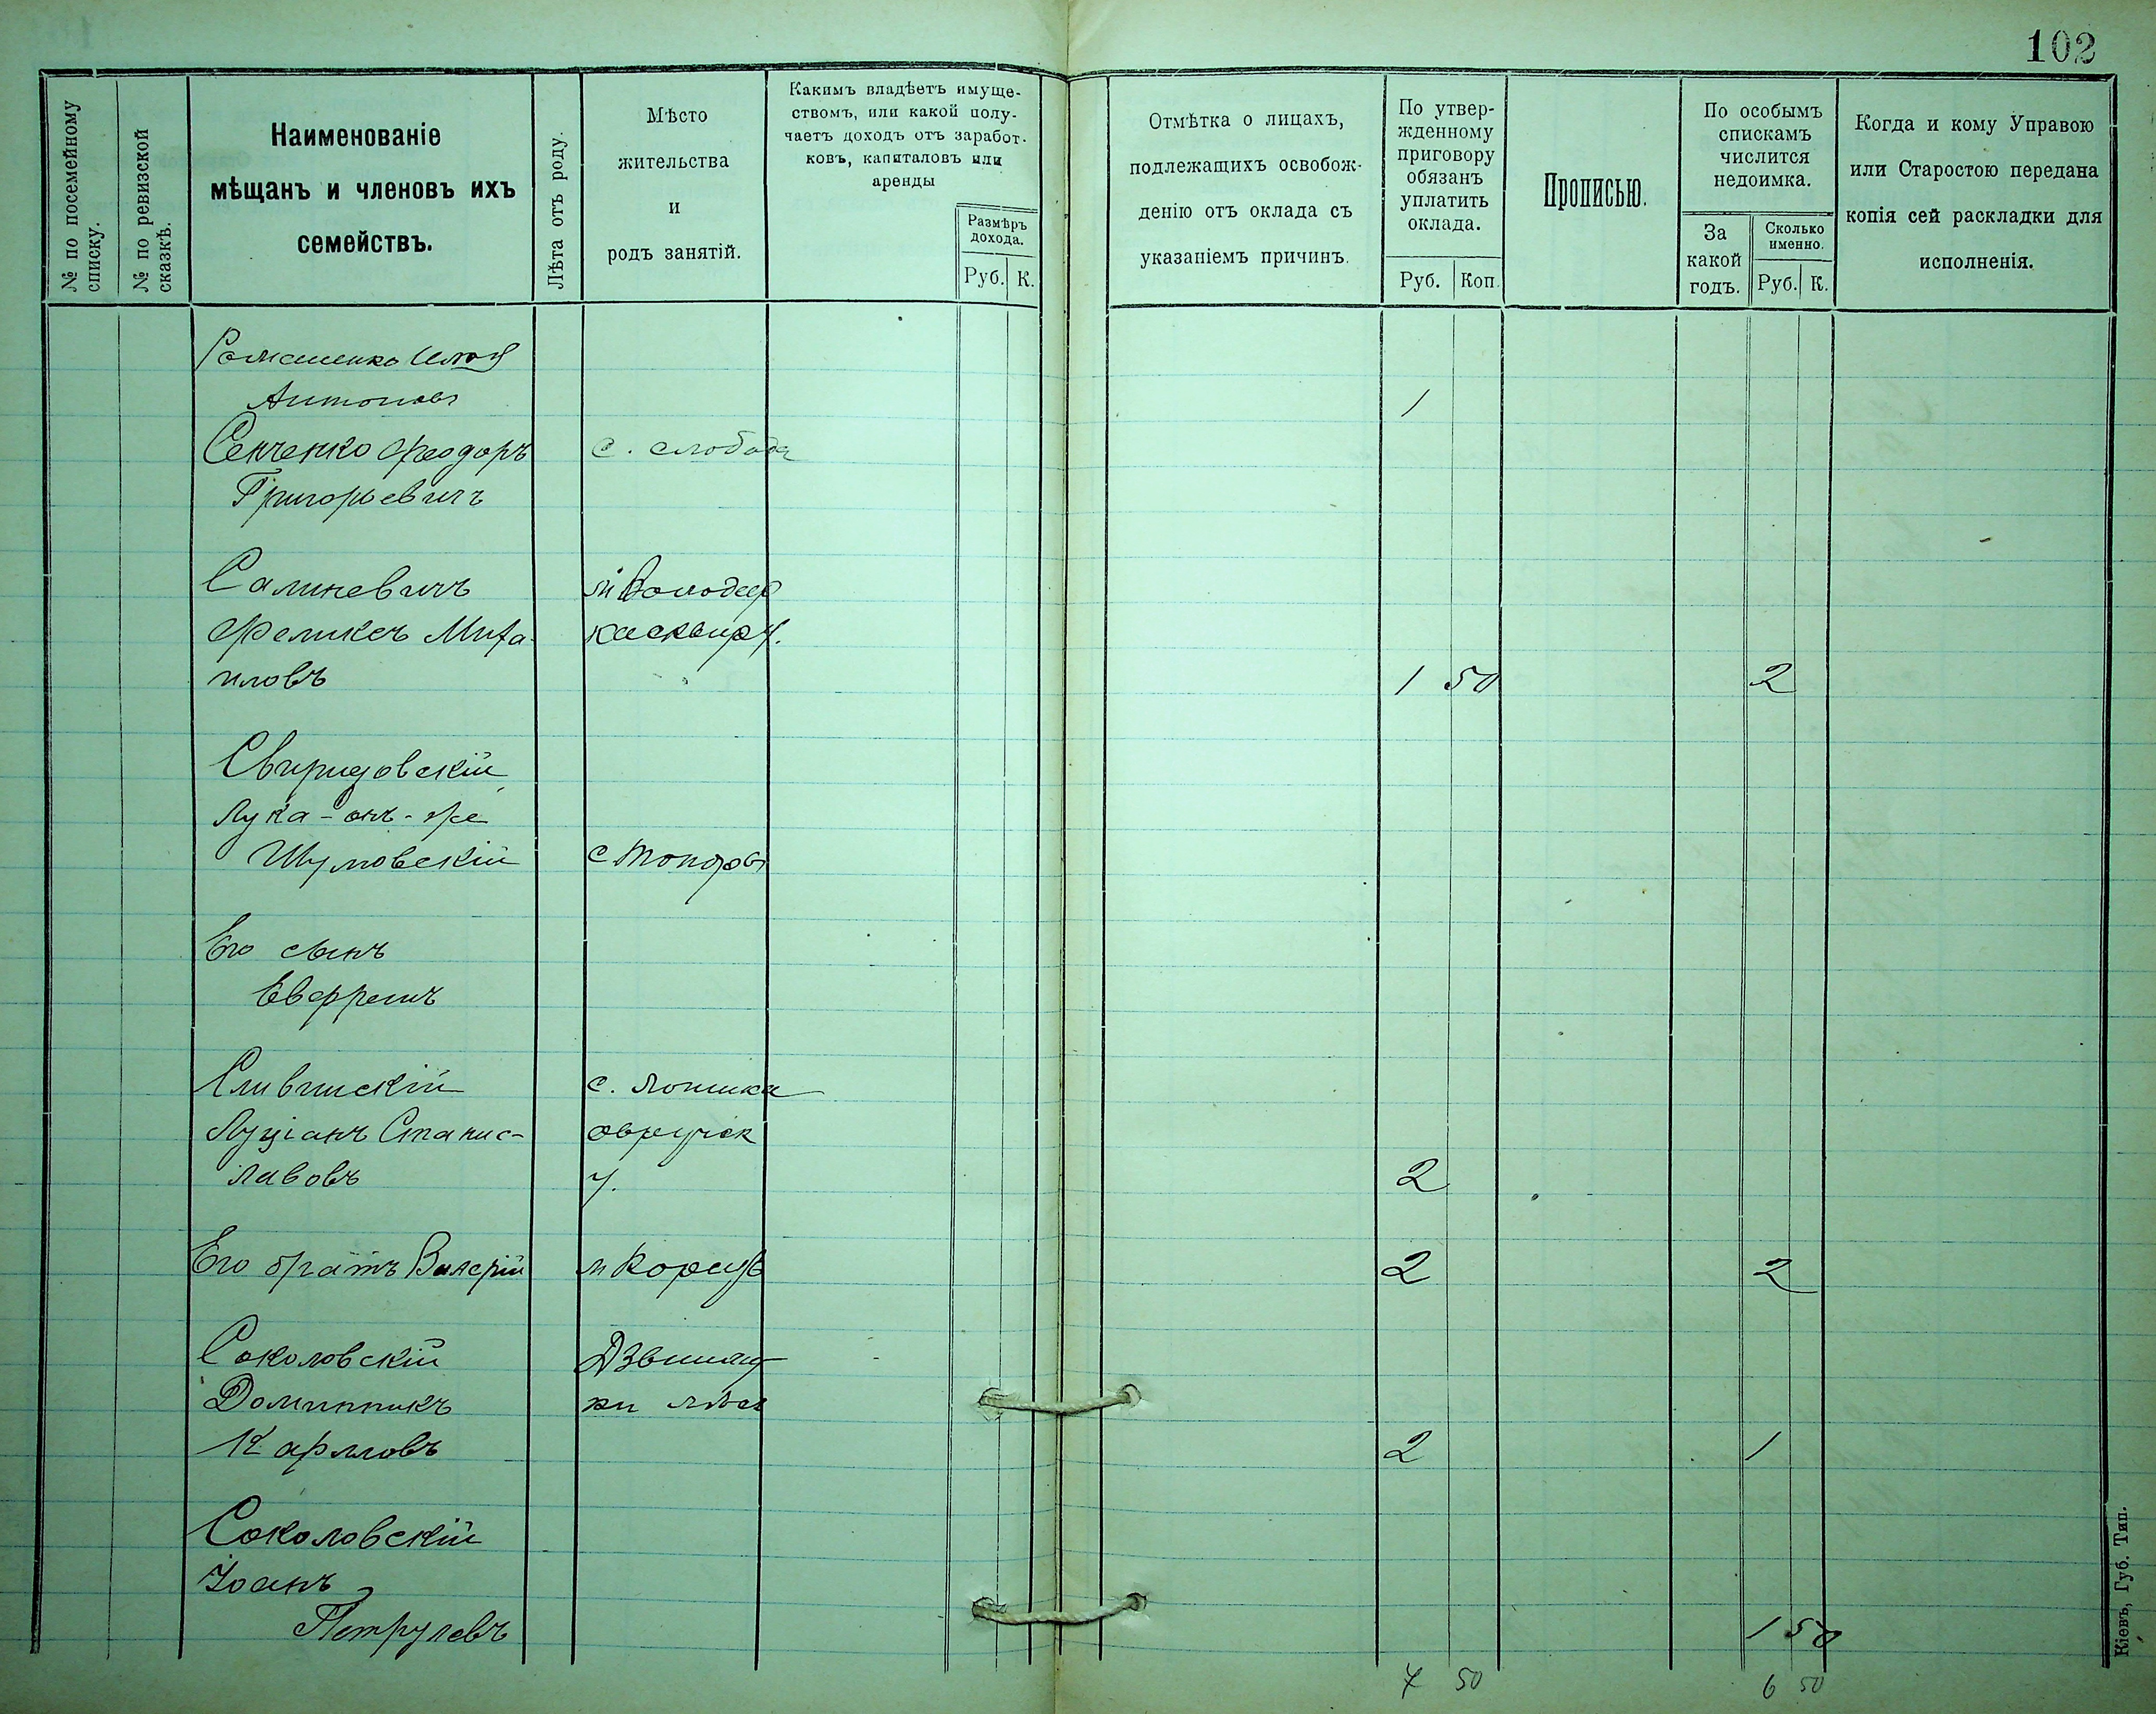 102
№ по посемейному
списку.
№ по ревизской
сказкѣ.
Наименованіе
мѣщанъ и членовъ ихъ
семействъ.
Лѣта отъ роду.
Мѣсто
жительства
и
родъ занятій.
Какимъ владѣетъ имуще-
ствомъ, или какой полу-
чаетъ доходъ отъ заработ-
ковъ, капиталовъ или
аренды
Размѣръ
дохода.
Руб. К.
Отмѣтка о лицахъ,
подлежащихъ освобож-
денію отъ оклада съ
указаніемъ причинъ.
По утвер-
жденному
приговору
обязанъ
уплатить
оклада.
Руб. Коп.
Прописью.
По особымъ
спискамъ
числится
недоимка.
За
какой
годъ.
Сколько
именно.
Руб. К.
Когда и кому Управою
или Старостою передана
копія сей раскладки для
исполненія.
Романенко Илья
Антоновъ 1
Сенченко Феодоръ с. слобода
Григорьевичъ
Салиневичъ м
Феликсъ Миха-
иловъ 1 50 2
Свиридовскій
Лука - онъ - же
Шумовскій с Топоры
Его сынъ
Евфремъ
Сливинскій с.
Луціанъ Станис- овручск
лавовъ у. 2
Его братъ Валерій м 2 2
Соколовскій
Доминникъ
Карловъ 2 1
Соколовскій
Іоанъ
Петрулевъ 1 50
7 50 6 50
Кіевъ, Губ. Тип.